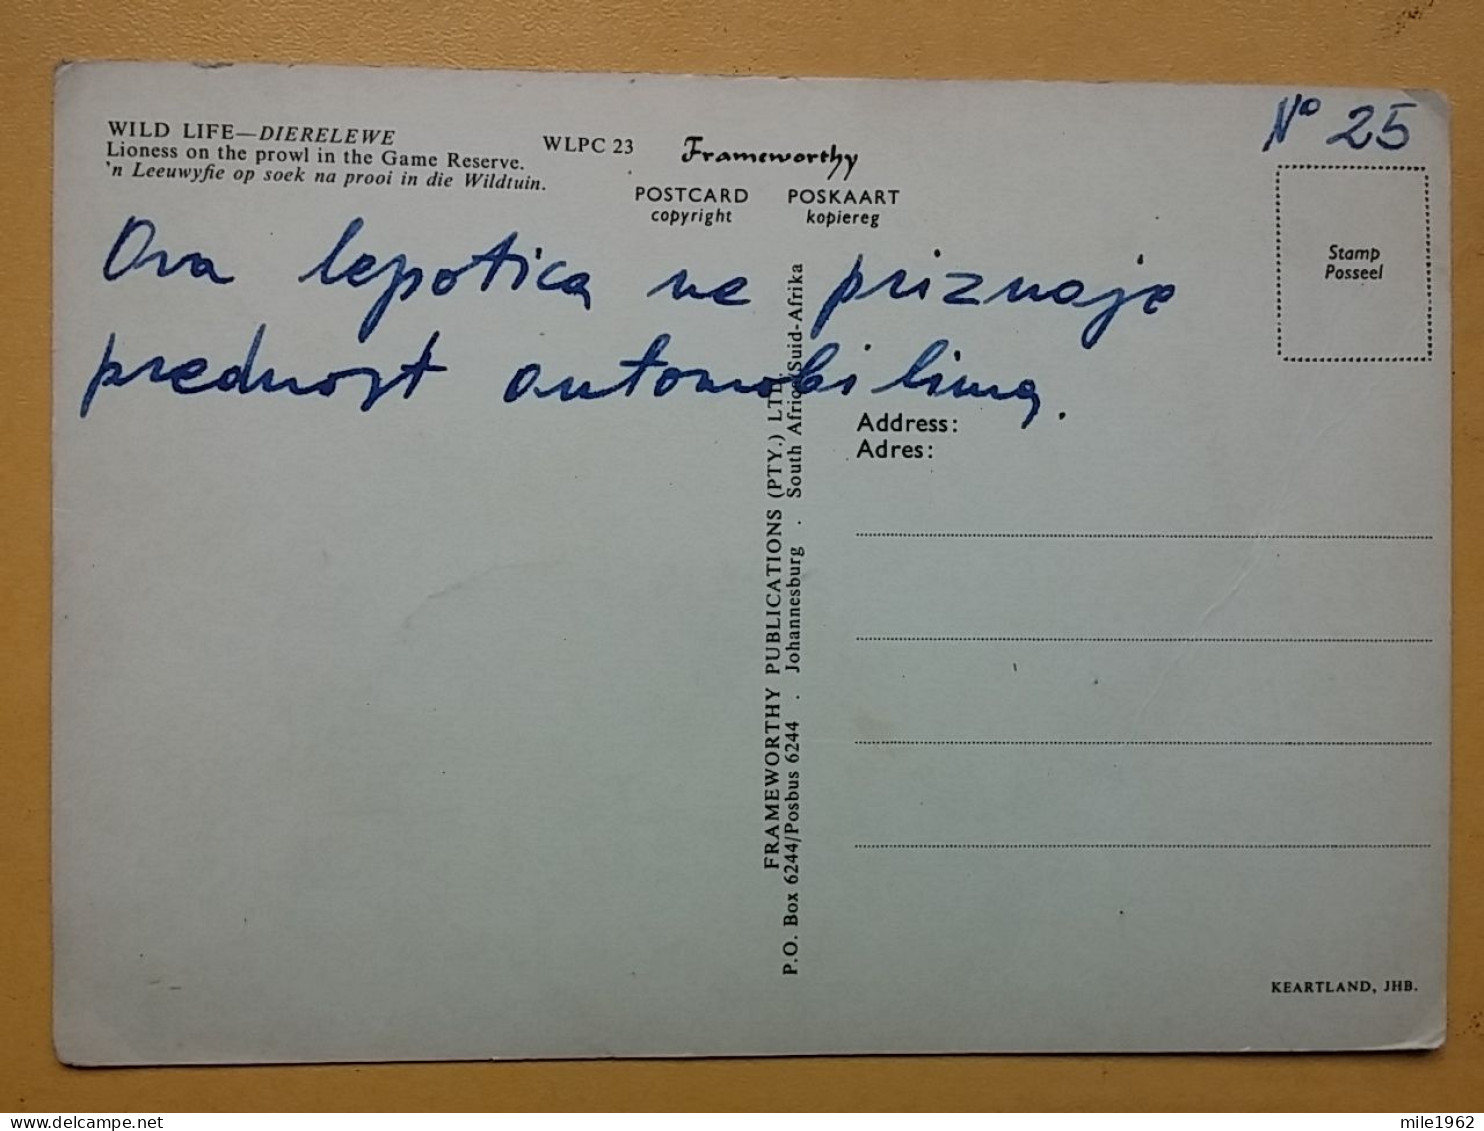 WILD LIFE—DIERELEWE
Lioness on the prowl in the Game Reserve.
'n Leeuwyfie op soek na prooi in die Wildtuin.
WLPC 23
Frameworthy
POSTCARD POSKAART
copyright kopiereg
Nº 25
Stamp
Posseel
Ova lepotica ne priznaje
prednost automobilima.
Address:
Adres:
FRAMEWORTHY PUBLICATIONS (PTY.) LTD.
P.O. Box 6244/Posbus 6244 . Johannesburg . South Africa/Suid-Afrika
KEARTLAND, JHB.
mile1962